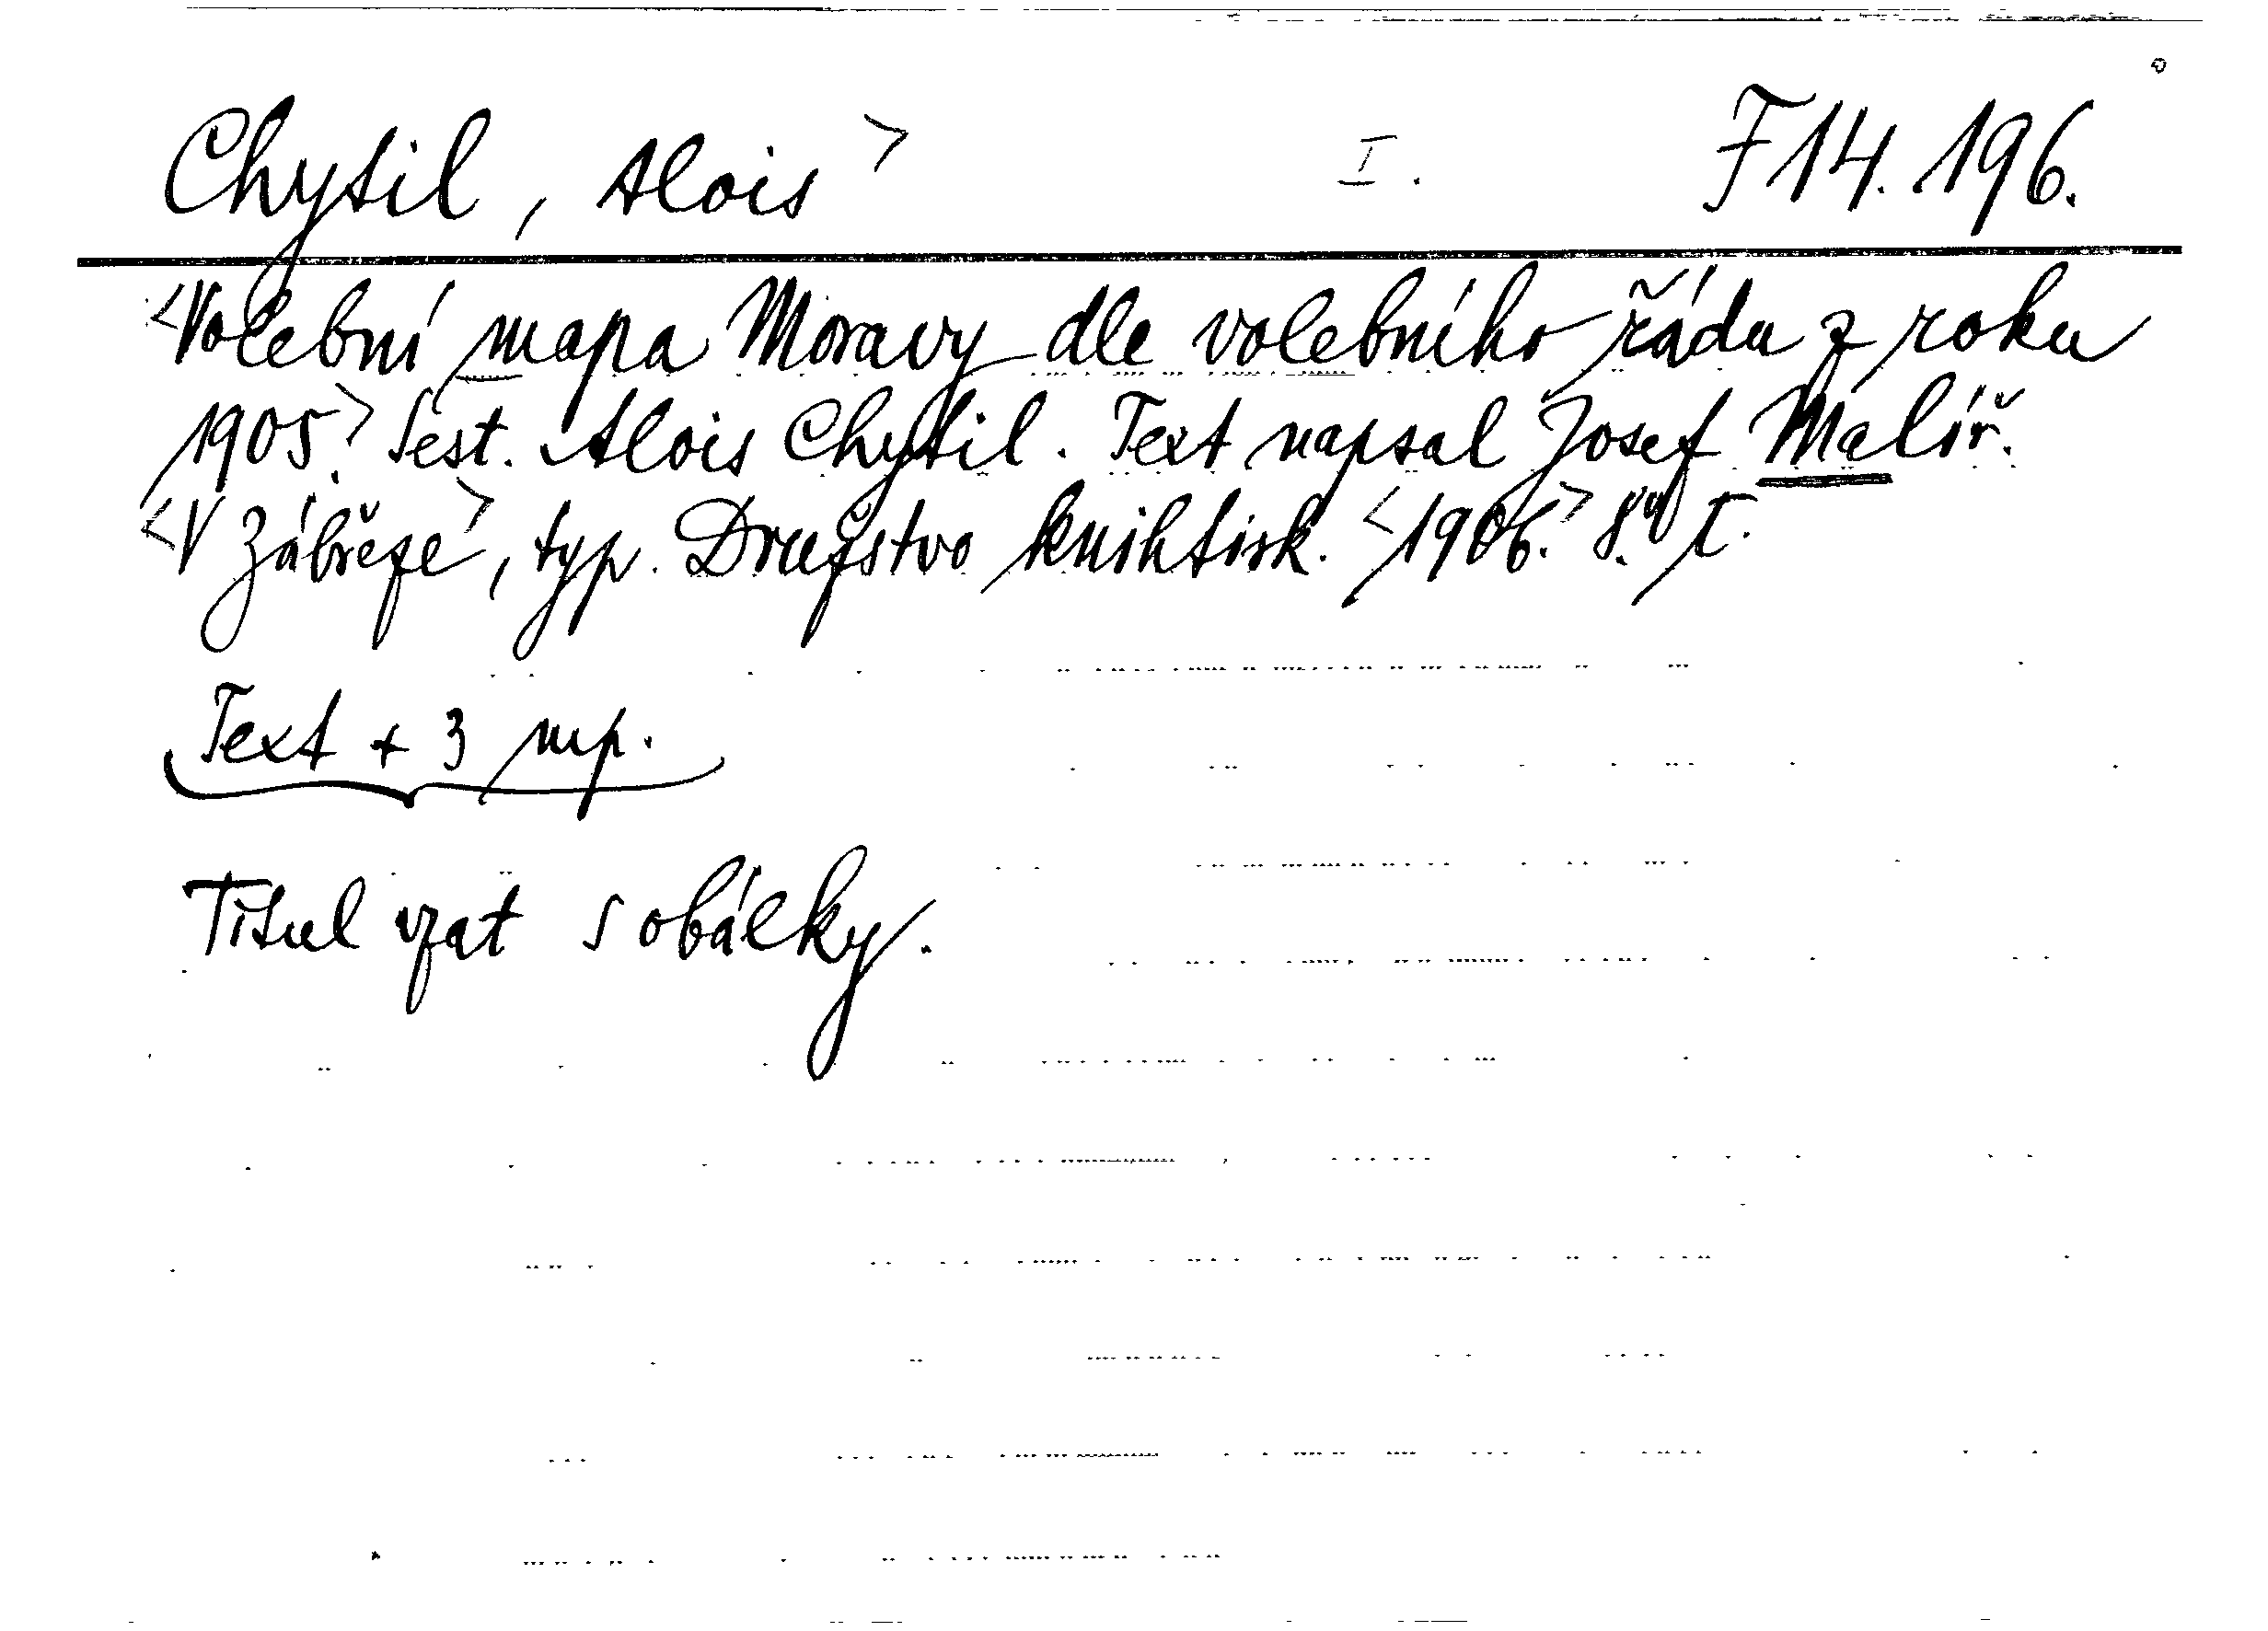 Chytil, Alois> I. F14.196.
<Volební mapa Moravy dle volebního řádu z roku
1905.> Sest. Alois Chytil. Text napsal Josef Malíř.
<V Zábřeze>, typ. Družstvo knihtisk. <1906.> 8.° I.
Text + 3 mp.
Titul vzat s obálky.